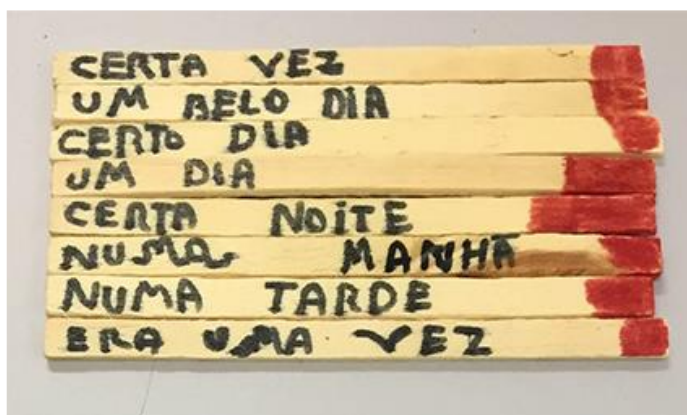 CERTA VEZ
UM BELO DIA
CERTO DIA
UM DIA
CERTA NOITE
NUMA MANHÃ
NUMA TARDE
ERA UMA VEZ